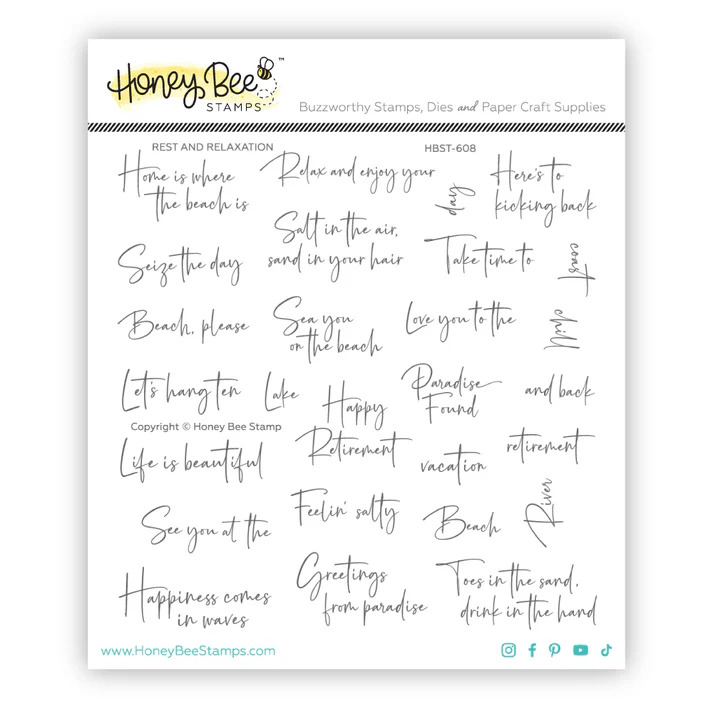 Honey Bee
STAMPS
™
Buzzworthy Stamps, Dies and Paper Craft Supplies
REST AND RELAXATION
HBST-608
Home is where
the beach is
Relax and enjoy your
day
Here's to
kicking back
Seize the day
Salt in the air,
sand in your hair
Take time to
coast
Beach, please
Sea you
on the beach
Love you to the
chill
Let's hang ten
Lake
Happy
Retirement
Paradise
Found
and back
Copyright © Honey Bee Stamp
Life is beautiful
vacation
retirement
See you at the
Feelin' salty
Beach
River
Happiness comes
in waves
Greetings
from paradise
Toes in the sand,
drink in the hand
www.HoneyBeeStamps.com